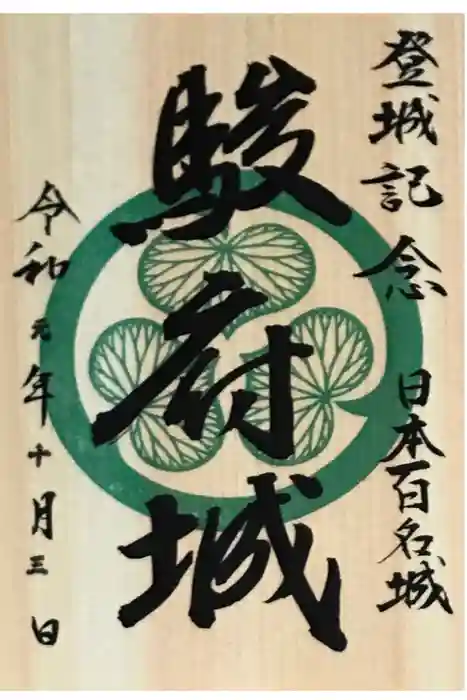 登城記念 日本百名城
駿府城
令和元年十月三日